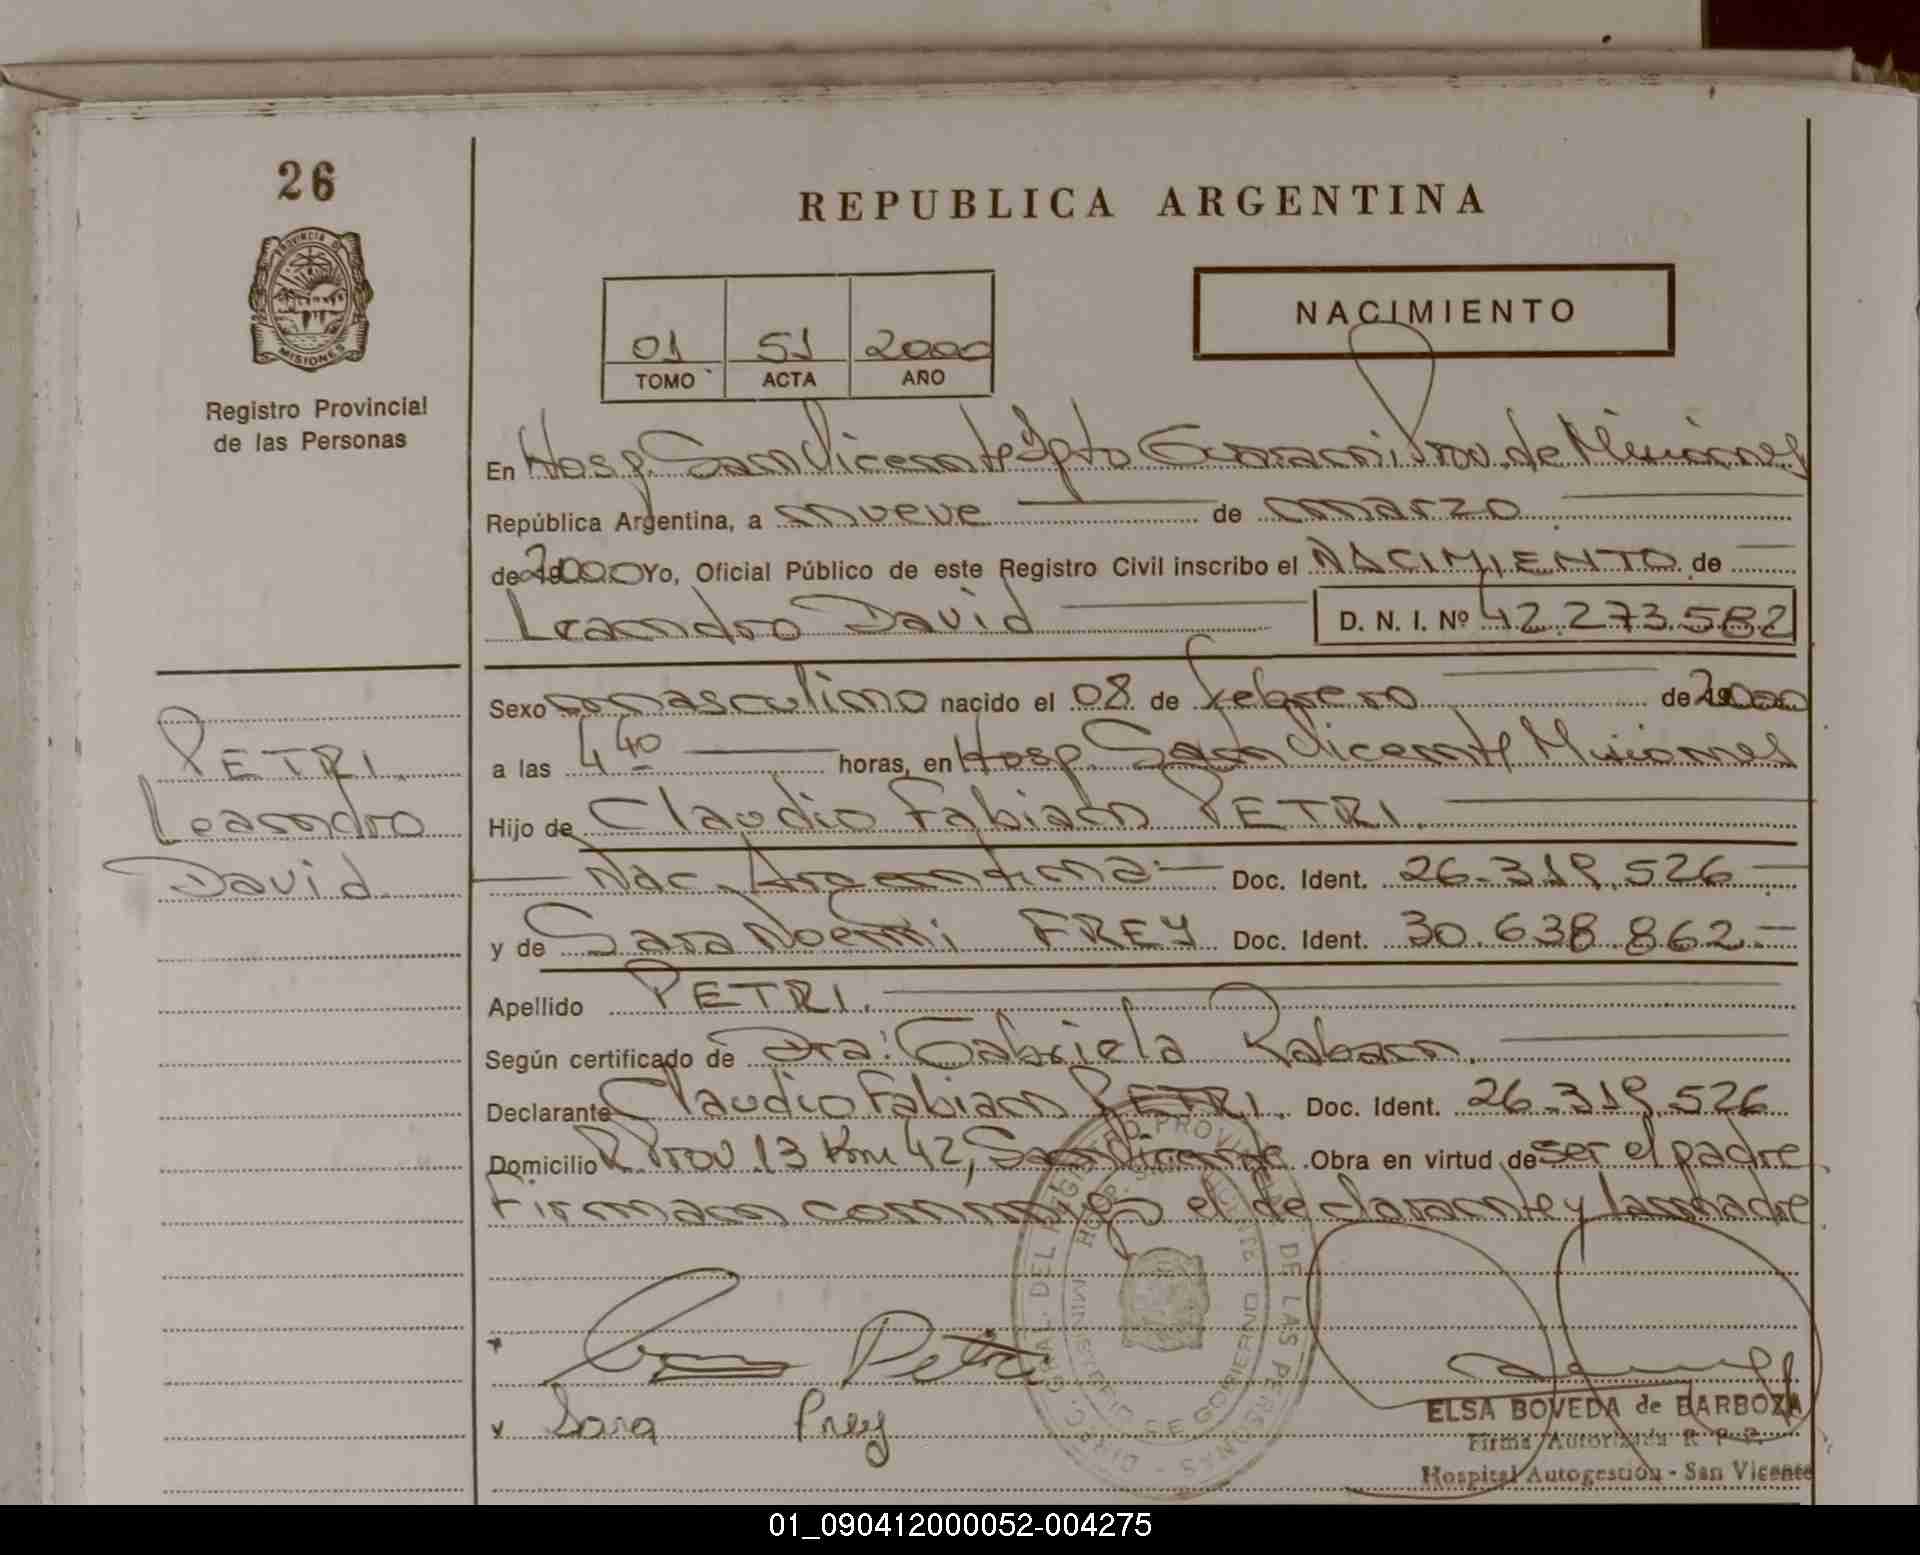 26
REPUBLICA ARGENTINA
PROVINCIA DE
MISIONES
Registro Provincial
de las Personas
NACIMIENTO
01 51 2000
TOMO ACTA AÑO
En Hosp. San Vicente Dpto Guarani Prov. de Misiones
República Argentina, a nueve de marzo
de 2000 Yo, Oficial Público de este Registro Civil inscribo el NACIMIENTO de
Leandro David D. N. I. Nº 42.273.582
Sexo masculino nacido el 08 de febrero de 2000
a las 4 40 horas, en Hosp. San Vicente Misiones
PETRI.
Leandro
David
Hijo de Claudio Fabian PETRI.
Nac. Argentina Doc. Ident. 26.319.526
y de Sara Noemi FREY Doc. Ident. 30.638.862
Apellido PETRI.
Según certificado de Dra: Gabriela Raban.
Declarante Claudio Fabian PETRI. Doc. Ident. 26.319.526
Domicilio R Prov 13 Km 42, San Vicente Obra en virtud de ser el padre
Firman conmigo el declarante y la madre
Petri
Sara Frey
DIREC. GRAL. DEL REGISTRO PROVINCIAL DE LAS PERSONAS
HOSP. SAN VICENTE
MINISTERIO DE GOBIERNO
ELSA BOVEDA de BARBOZA
Firma Autorizada R. P. P.
Hospital Autogestión - San Vicente
01_090412000052-004275